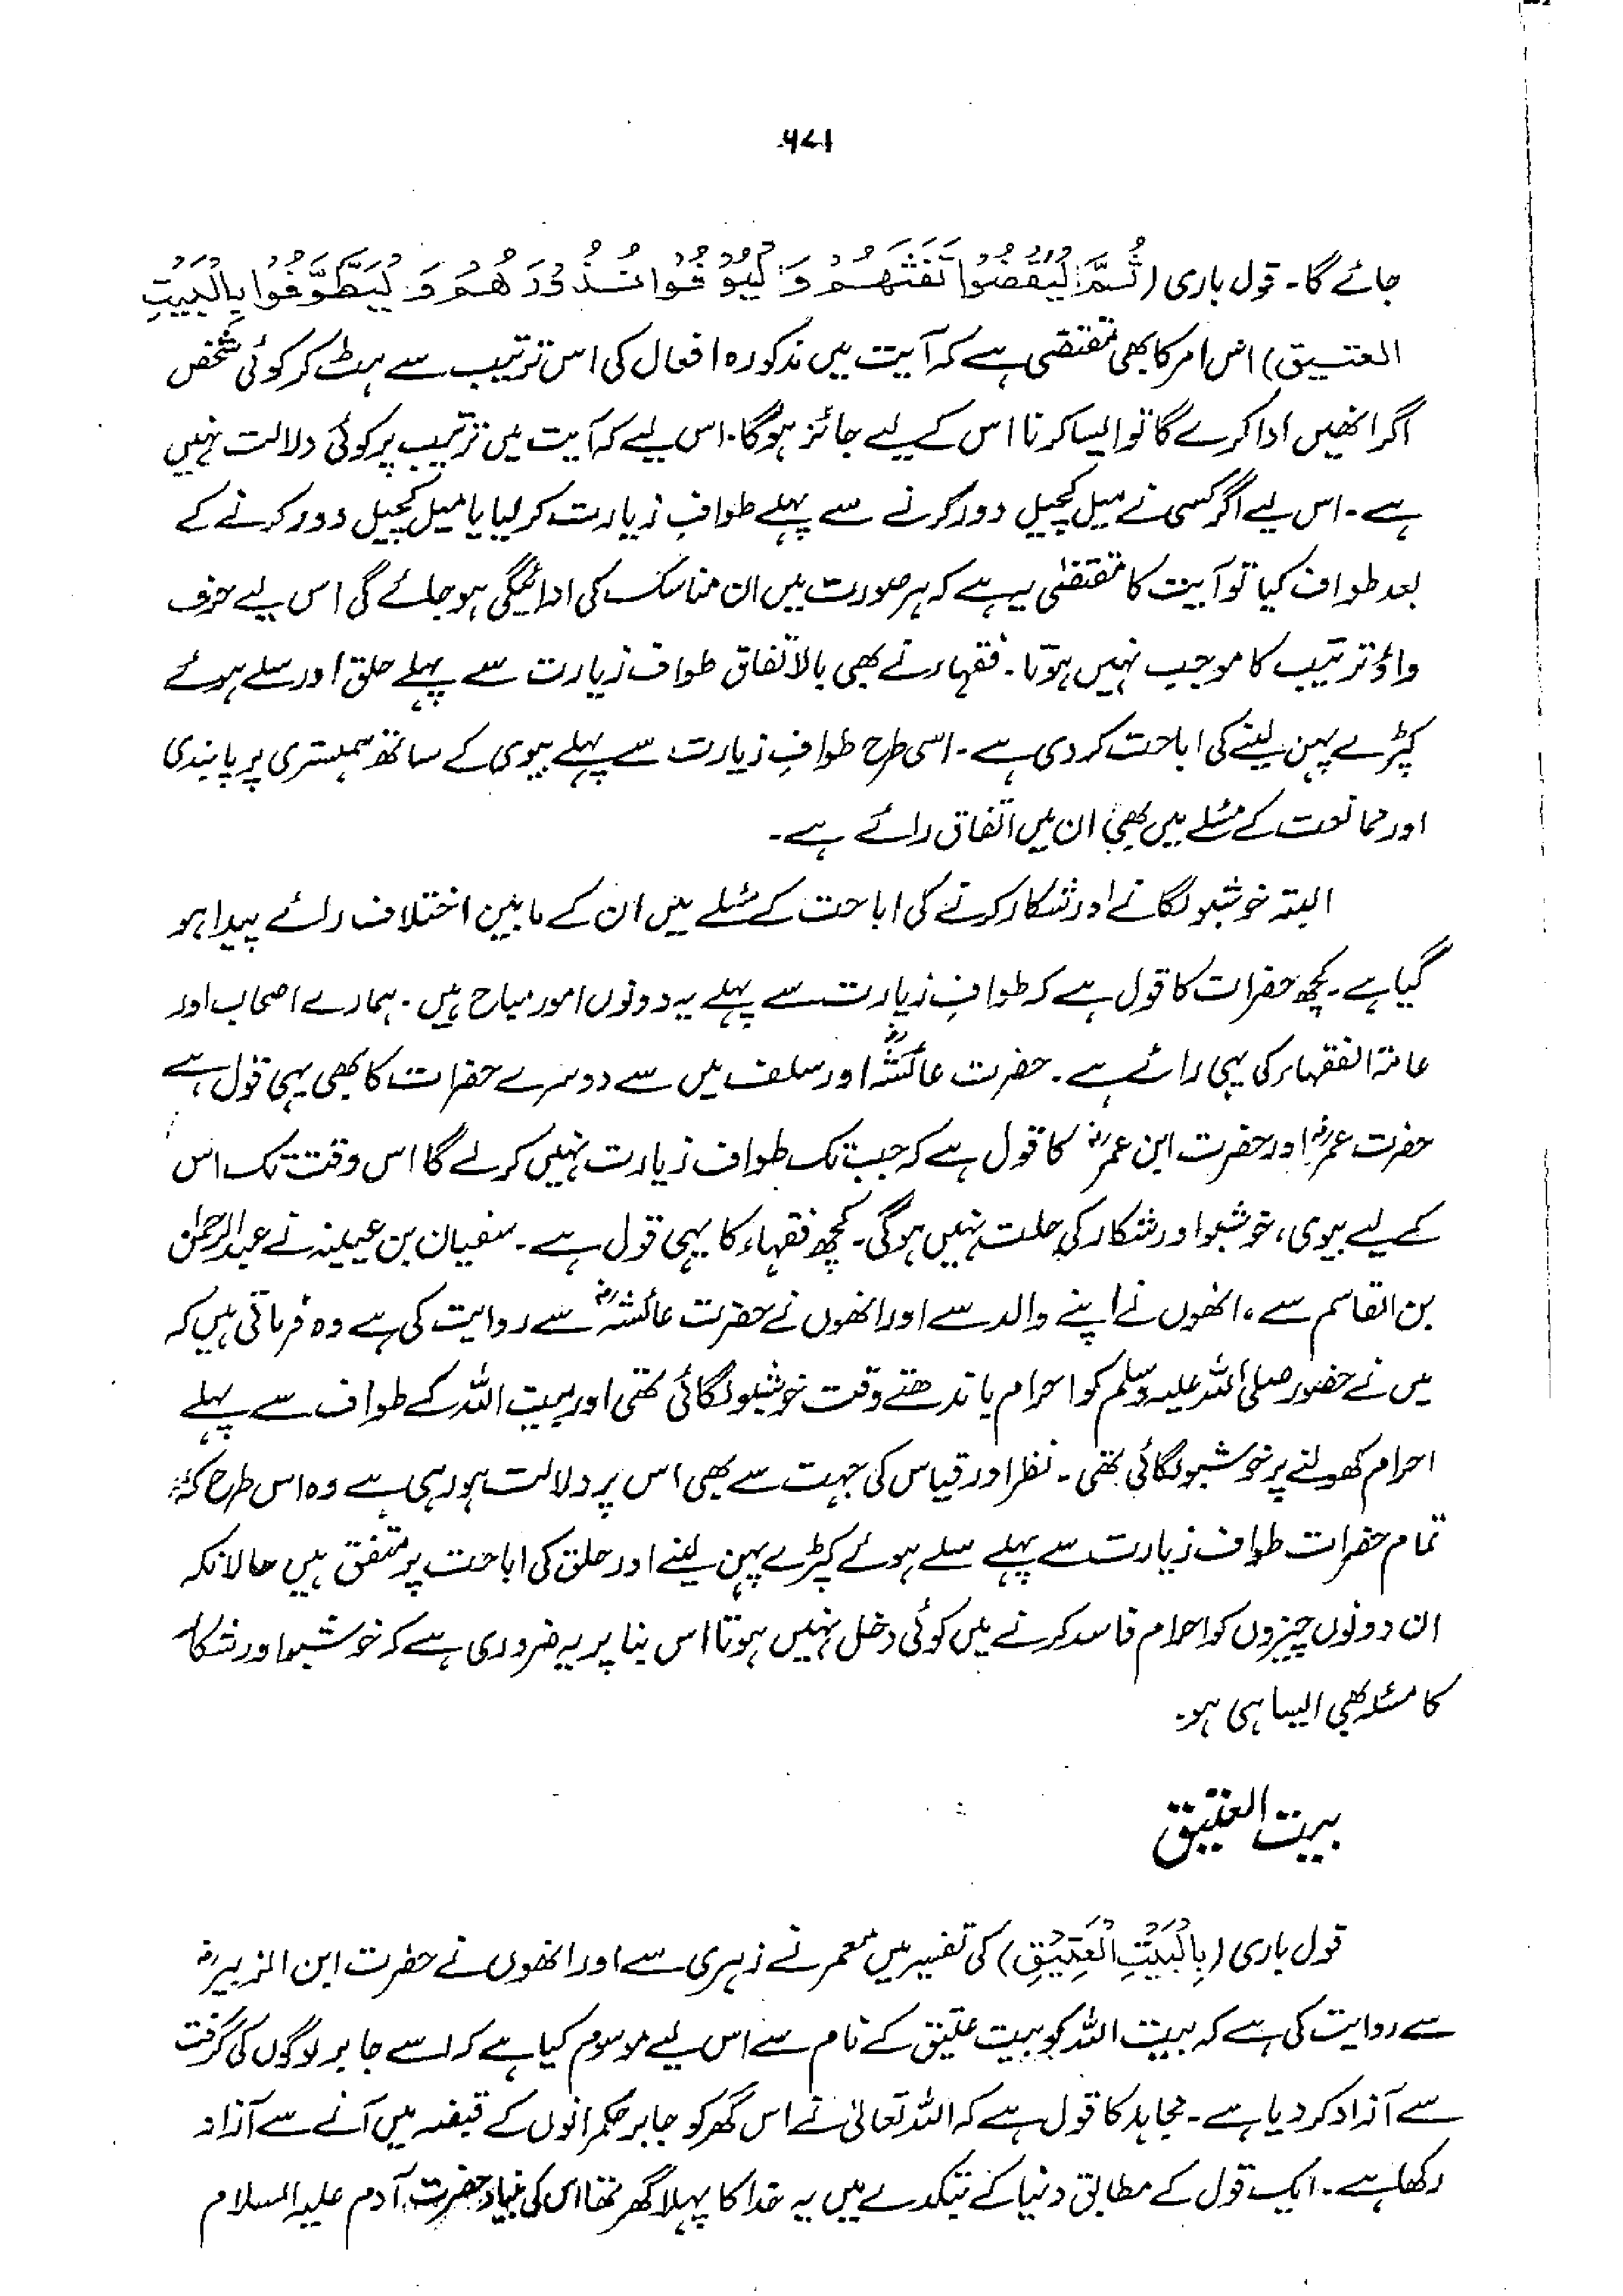 ۶۷۱
جائے گا۔ قول باری (ثُمَّ لْيَقْضُوا تَفَثَهُمْ وَلْيُوْفُوا نُذُوْرَهُمْ وَلْيَطَّوَّفُوا بِالْبَيْتِ
العتیق) اس امر کا بھی مقتضی ہے کہ آیت میں مذکورہ افعال کی اس ترتیب سے ہٹ کر کوئی شخص
اگر انھیں ادا کرے گا تو ایسا کرنا اس کے لیے جائز ہوگا۔ اس لیے کہ آیت میں ترتیب پر کوئی دلالت نہیں
ہے۔ اس لیے اگر کسی نے میل کچیل دور کرنے سے پہلے طوافِ زیارت کر لیا یا میل کچیل دور کرنے کے
بعد طواف کیا تو آیت کا مقتضٰی یہ ہے کہ ہر صورت میں ان مناسک کی ادائیگی ہو جائے گی اس لیے حرف
واؤ ترتیب کا موجب نہیں ہوتا۔ فقہاء نے بھی بالاتفاق طواف زیارت سے پہلے حلق اور سلے ہوئے
کپڑے پہن لینے کی اباحت کر دی ہے۔ اسی طرح طوافِ زیارت سے پہلے بیوی کے ساتھ ہمبستری پر پابندی
اور ممانعت کے مسئلے میں بھی ان میں اتفاق رائے ہے۔
البتہ خوشبو لگانے اور شکار کرنے کی اباحت کے مسئلے میں ان کے مابین اختلاف رائے پیدا ہو
گیا ہے۔ کچھ حضرات کا قول ہے کہ طوافِ زیارت سے پہلے یہ دونوں امور مباح ہیں۔ ہمارے اصحاب اور
عامۃ الفقہاء کی یہی رائے ہے۔ حضرت عائشہؓ اور سلف میں سے دوسرے حضرات کا بھی یہی قول ہے
حضرت عمرؓ اور حضرت ابن عمرؓ کا قول ہے کہ جب تک طواف زیارت نہیں کرلے گا اس وقت تک اس
کے لیے بیوی، خوشبو اور شکار کی حلت نہیں ہوگی۔ کچھ فقہاء کا یہی قول ہے۔ سفیان بن عیینہ نے عبدالرحمٰن
بن القاسم سے، انھوں نے اپنے والد سے اور انھوں نے حضرت عائشہؓ سے روایت کی ہے وہ فرماتی ہیں کہ
میں نے حضور صلی اللہ علیہ وسلم کو احرام باندھتے وقت خوشبو لگائی تھی اور بیت اللہ کے طواف سے پہلے
احرام کھولنے پر خوشبو لگائی تھی۔ نظر اور قیاس کی جہت سے بھی اس پر دلالت ہو رہی ہے وہ اس طرح کہ
تمام حضرات طواف زیارت سے پہلے سلے ہوئے کپڑے پہن لینے اور حلق کی اباحت پر متفق ہیں حالانکہ
ان دونوں چیزوں کو احرام فاسد کرنے میں کوئی دخل نہیں ہوتا اس بنا پر یہ ضروری ہے کہ خوشبو اور شکار
کا مسئلہ بھی ایسا ہی ہو۔
بیت العتیق
قول باری (بِالْبَيْتِ الْعَتِيْقِ) کی تفسیر میں معمر نے زہری سے اور انھوں نے حضرت ابن الزبیرؓ
سے روایت کی ہے کہ بیت اللہ کو بیت عتیق کے نام سے اس لیے موسوم کیا ہے کہ اسے جابر لوگوں کی گرفت
سے آزاد کر دیا ہے۔ مجاہد کا قول ہے کہ اللہ تعالیٰ نے اس گھر کو جابر حکمرانوں کے قبضہ میں آنے سے آزاد
رکھا ہے۔ ایک قول کے مطابق دنیا کے بتکدے میں یہ خدا کا پہلا گھر تھا اس کی بنیاد حضرت آدم علیہ السلام